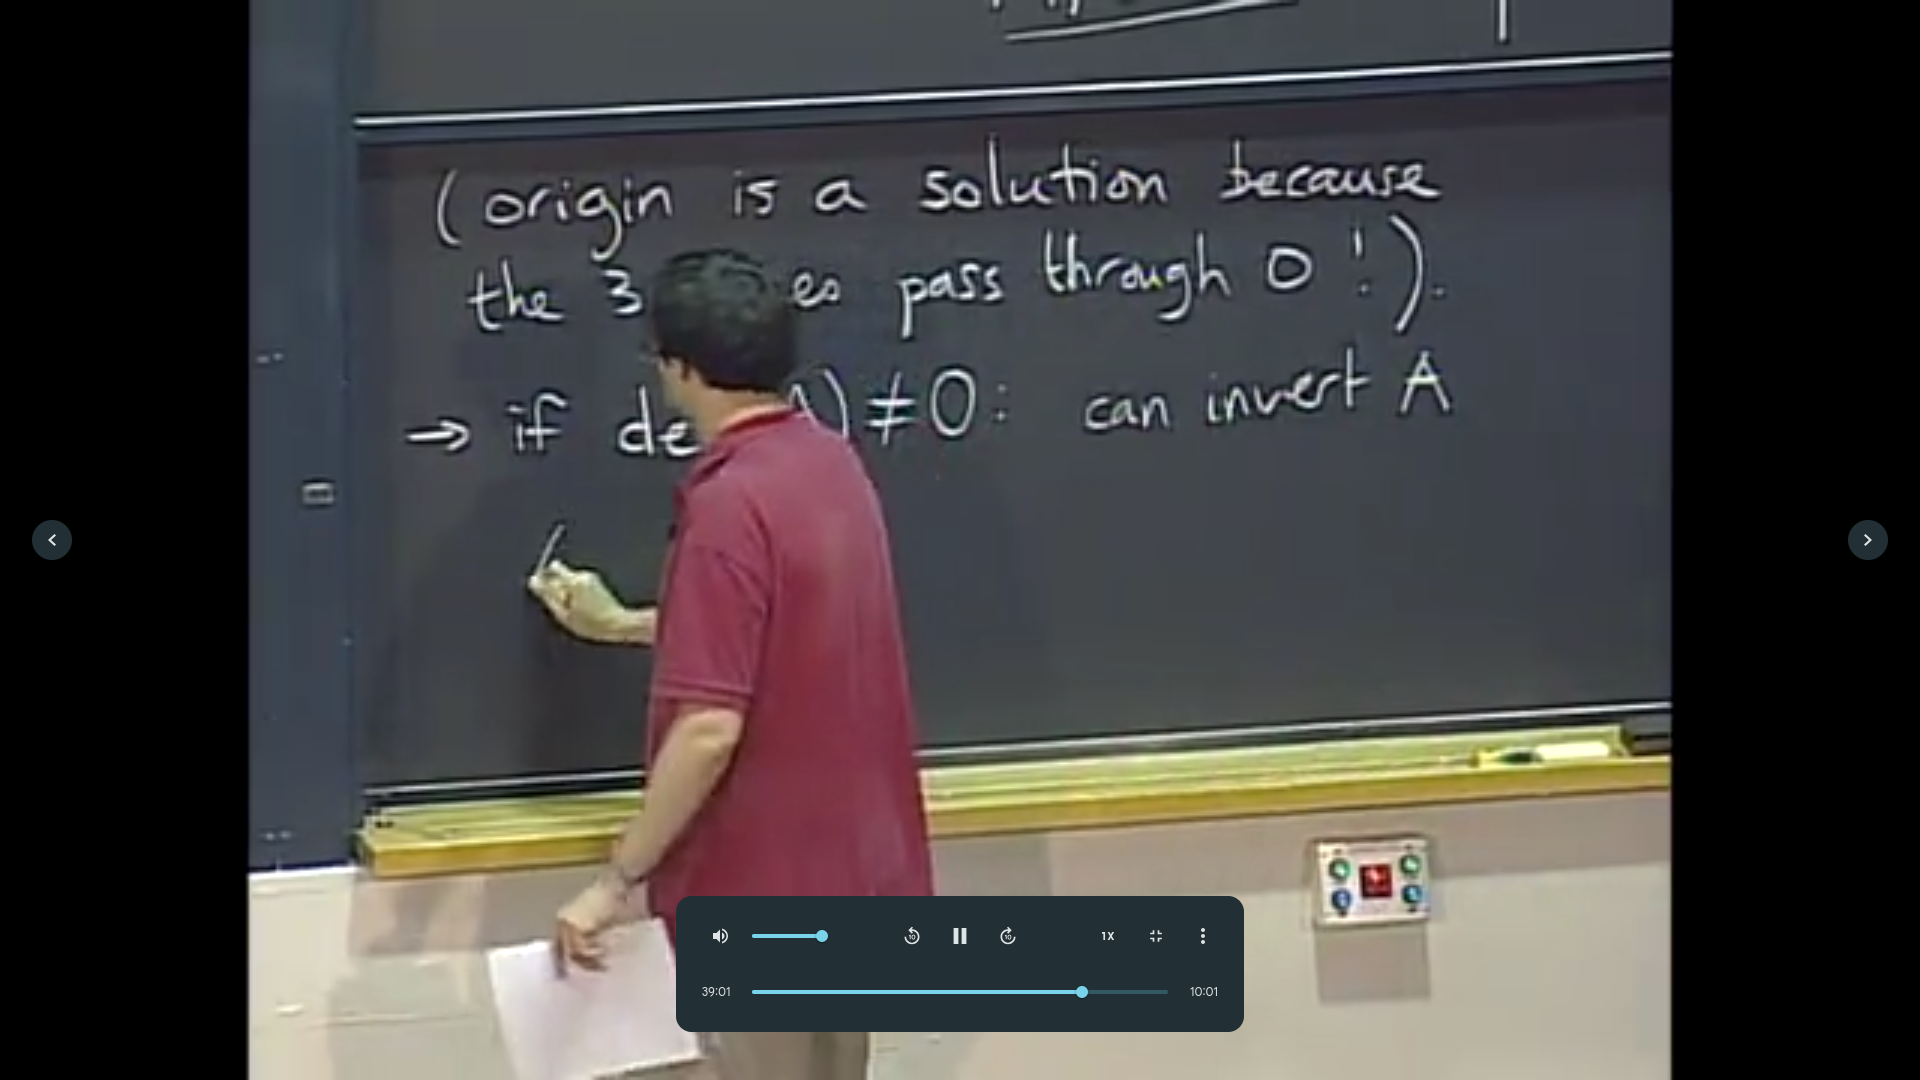 (origin is a solution because
the 3 es pass through 0!).
→ if de A) ≠ 0: can invert A
10 10 1X
39:01 10:01